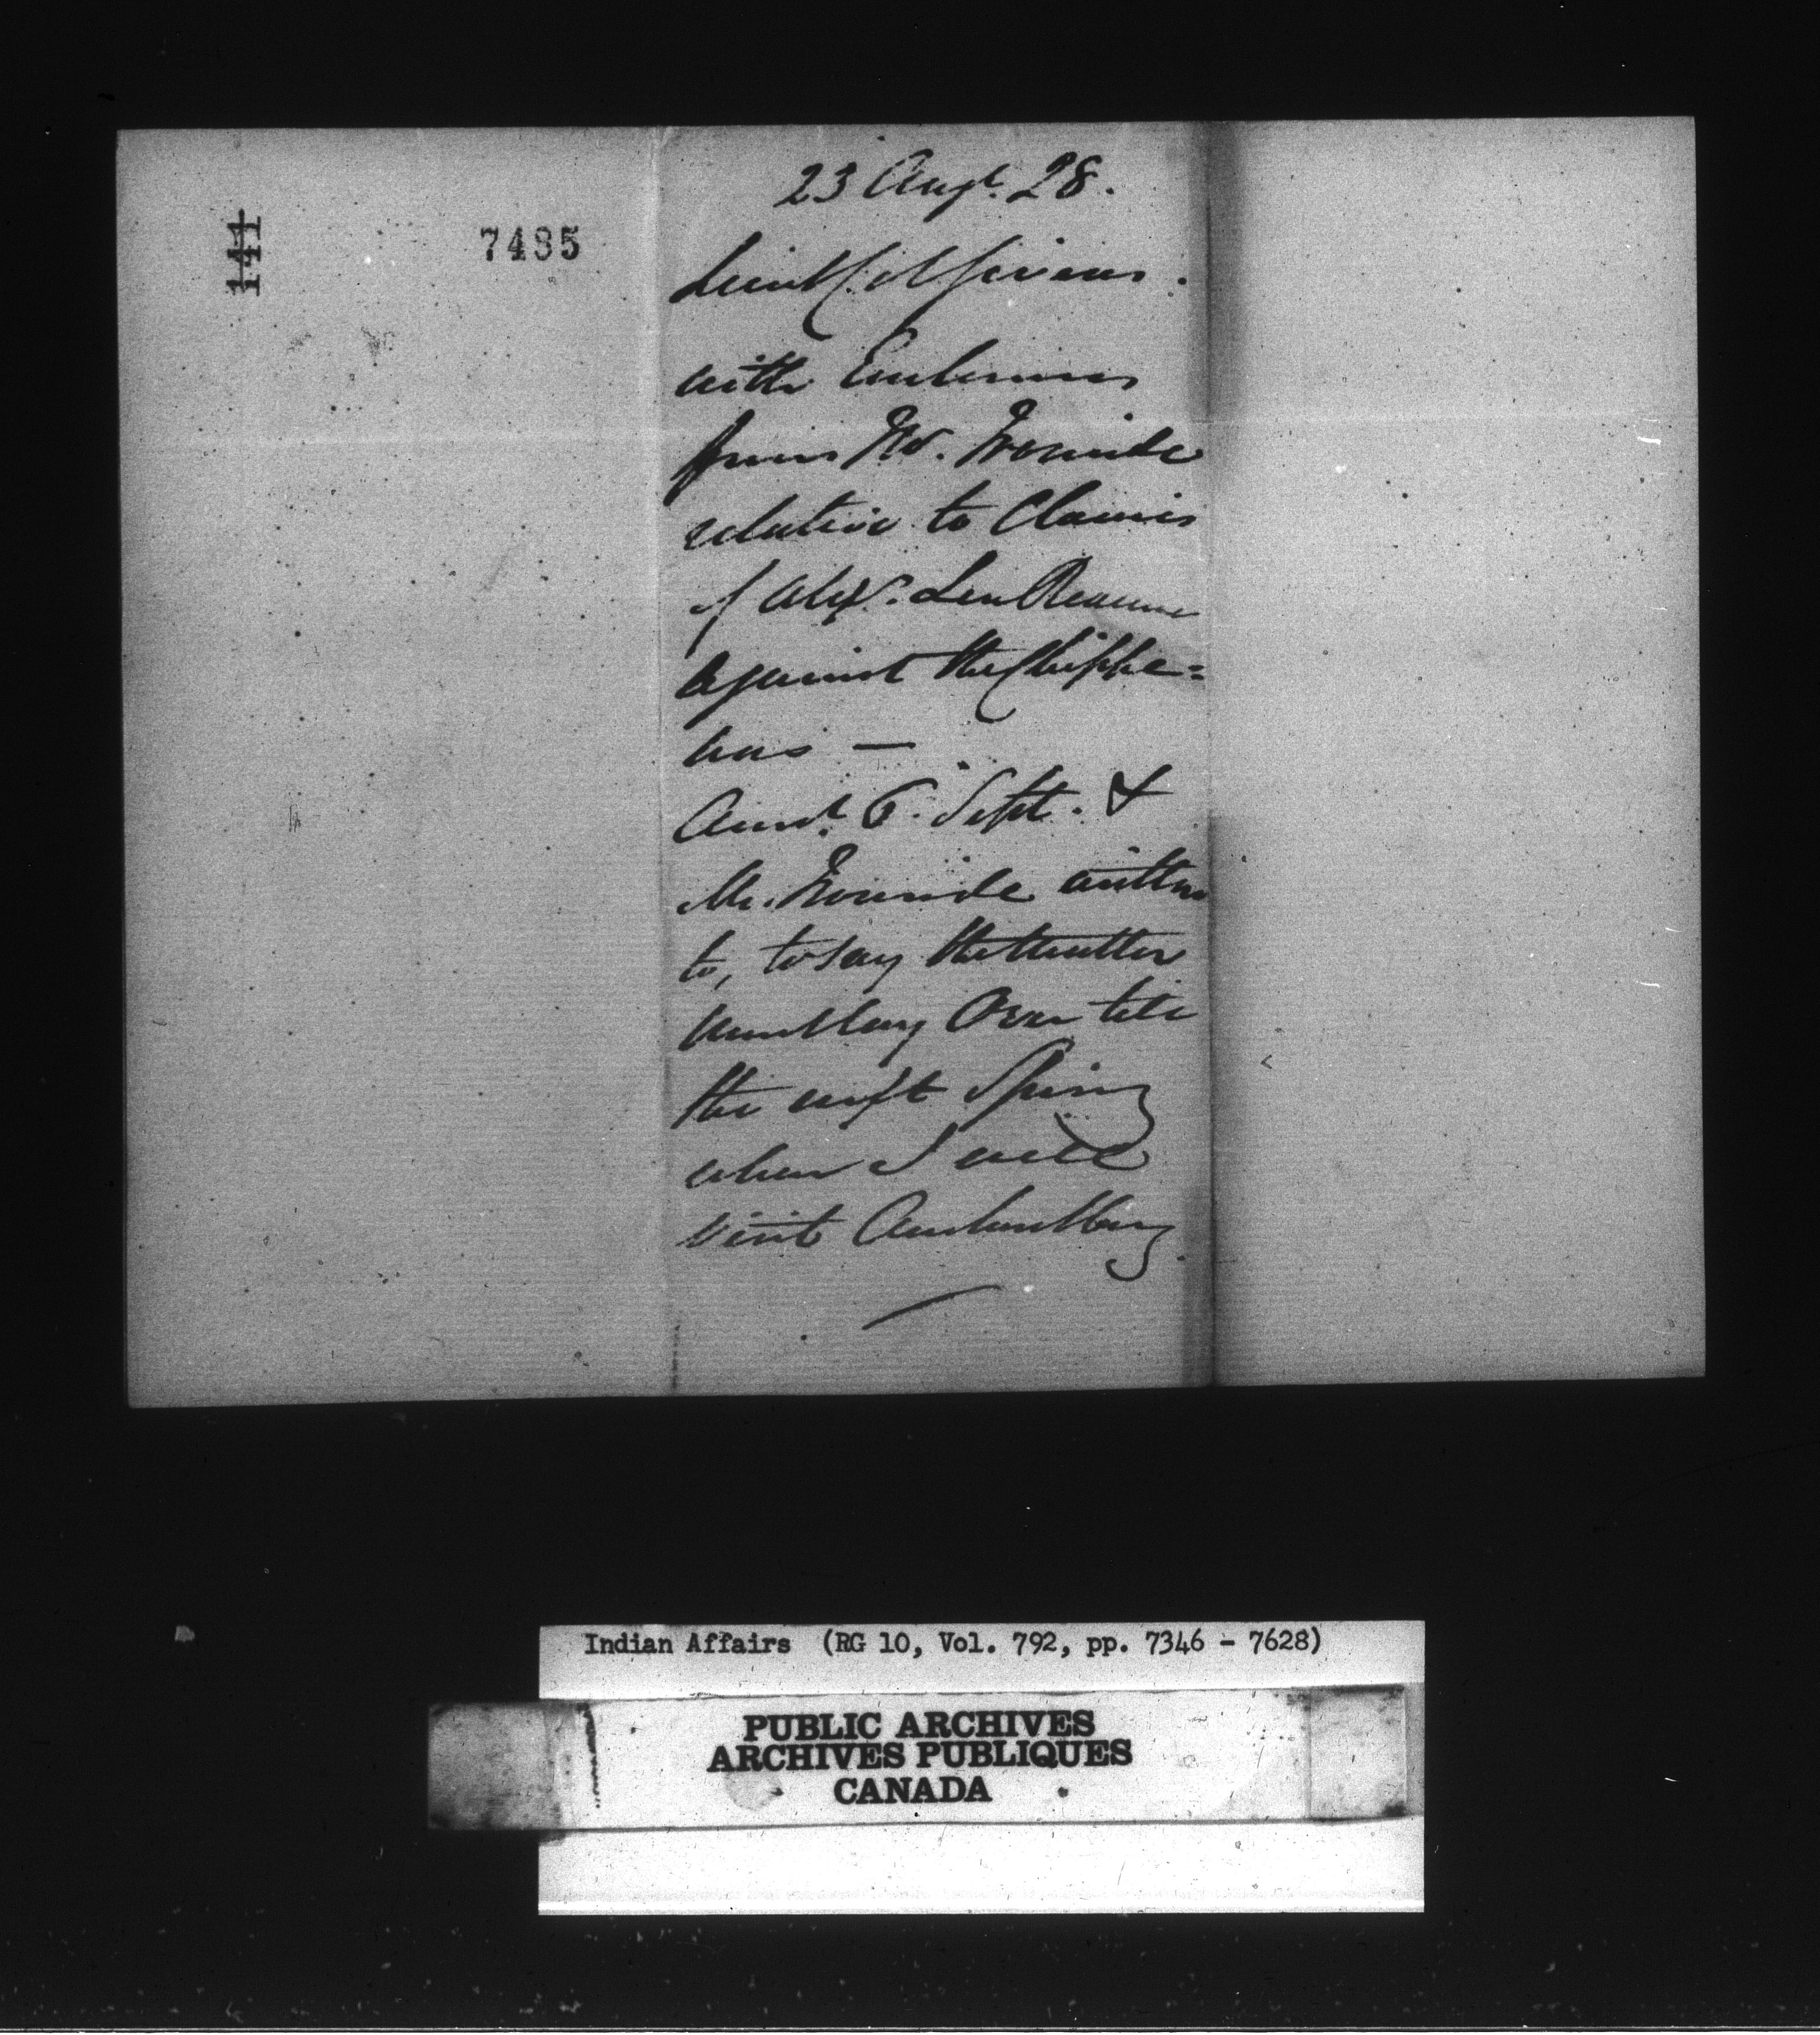 141
7485
23 Augt. 28.
Lieut Col Givins.
with Enclosures
from Mr. Ironside
relative to Claims
of Alexr. Reaume
against the Chippe=
was —
Ansd. 6. Sept. &
Mr. Ironside written
to, to say the matter
must lay over till
the next Spring
when I will
visit Amherstburg
Indian Affairs (RG 10, Vol. 792, pp. 7346 - 7628)
PUBLIC ARCHIVES
ARCHIVES PUBLIQUES
CANADA